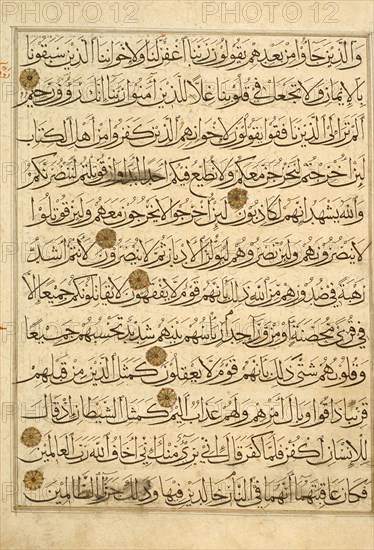 والذين جاؤا من بعدهم يقولون ربنا اغفر لنا ولاخواننا الذين سبقونا
بالايمان ولا تجعل في قلوبنا غلا للذين آمنوا ربنا انك رؤوف رحيم
الم تر الى الذين نافقوا يقولون لاخوانهم الذين كفروا من اهل الكتاب
لئن اخرجتم لنخرجن معكم ولا نطيع فيكم احدا ابدا وان قوتلتم لننصرنكم
والله يشهد انهم لكاذبون لئن اخرجوا لا يخرجون معهم ولئن قوتلوا
لا ينصرونهم ولئن نصروهم ليولن الادبار ثم لا ينصرون لانتم اشد
رهبة في صدورهم من الله ذلك بانهم قوم لا يفقهون لا يقاتلونكم جميعا الا
في قرى محصنة او من وراء جدر بأسهم بينهم شديد تحسبهم جميعا
وقلوبهم شتى ذلك بانهم قوم لا يعقلون كمثل الذين من قبلهم
قريبا ذاقوا وبال امرهم ولهم عذاب اليم كمثل الشيطان اذ قال
للانسان اكفر فلما كفر قال اني بريء منك اني اخاف الله رب العالمين
فكان عاقبتهما انهما في النار خالدين فيها وذلك جزاء الظالمين